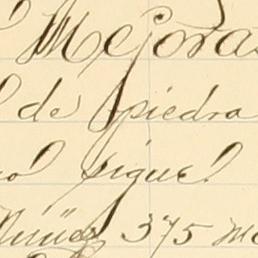 Mejoras
de piedra
sigue
Núñez 375 me